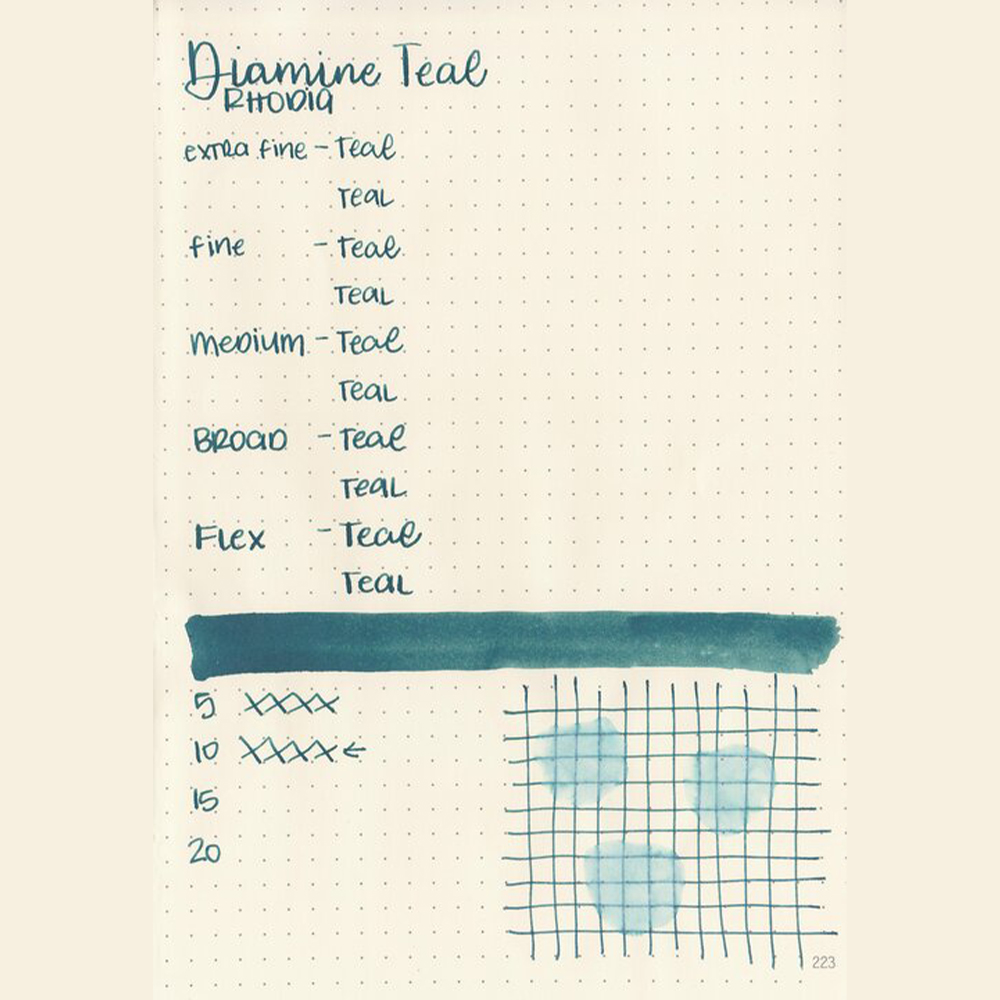 Diamine Teal
RHODIA
extra fine - Teal
Teal
fine - Teal
Teal
Medium - Teal
Teal
Broad - Teal
Teal
Flex - Teal
Teal
5 XXXX
10 XXXX←
15
20
223